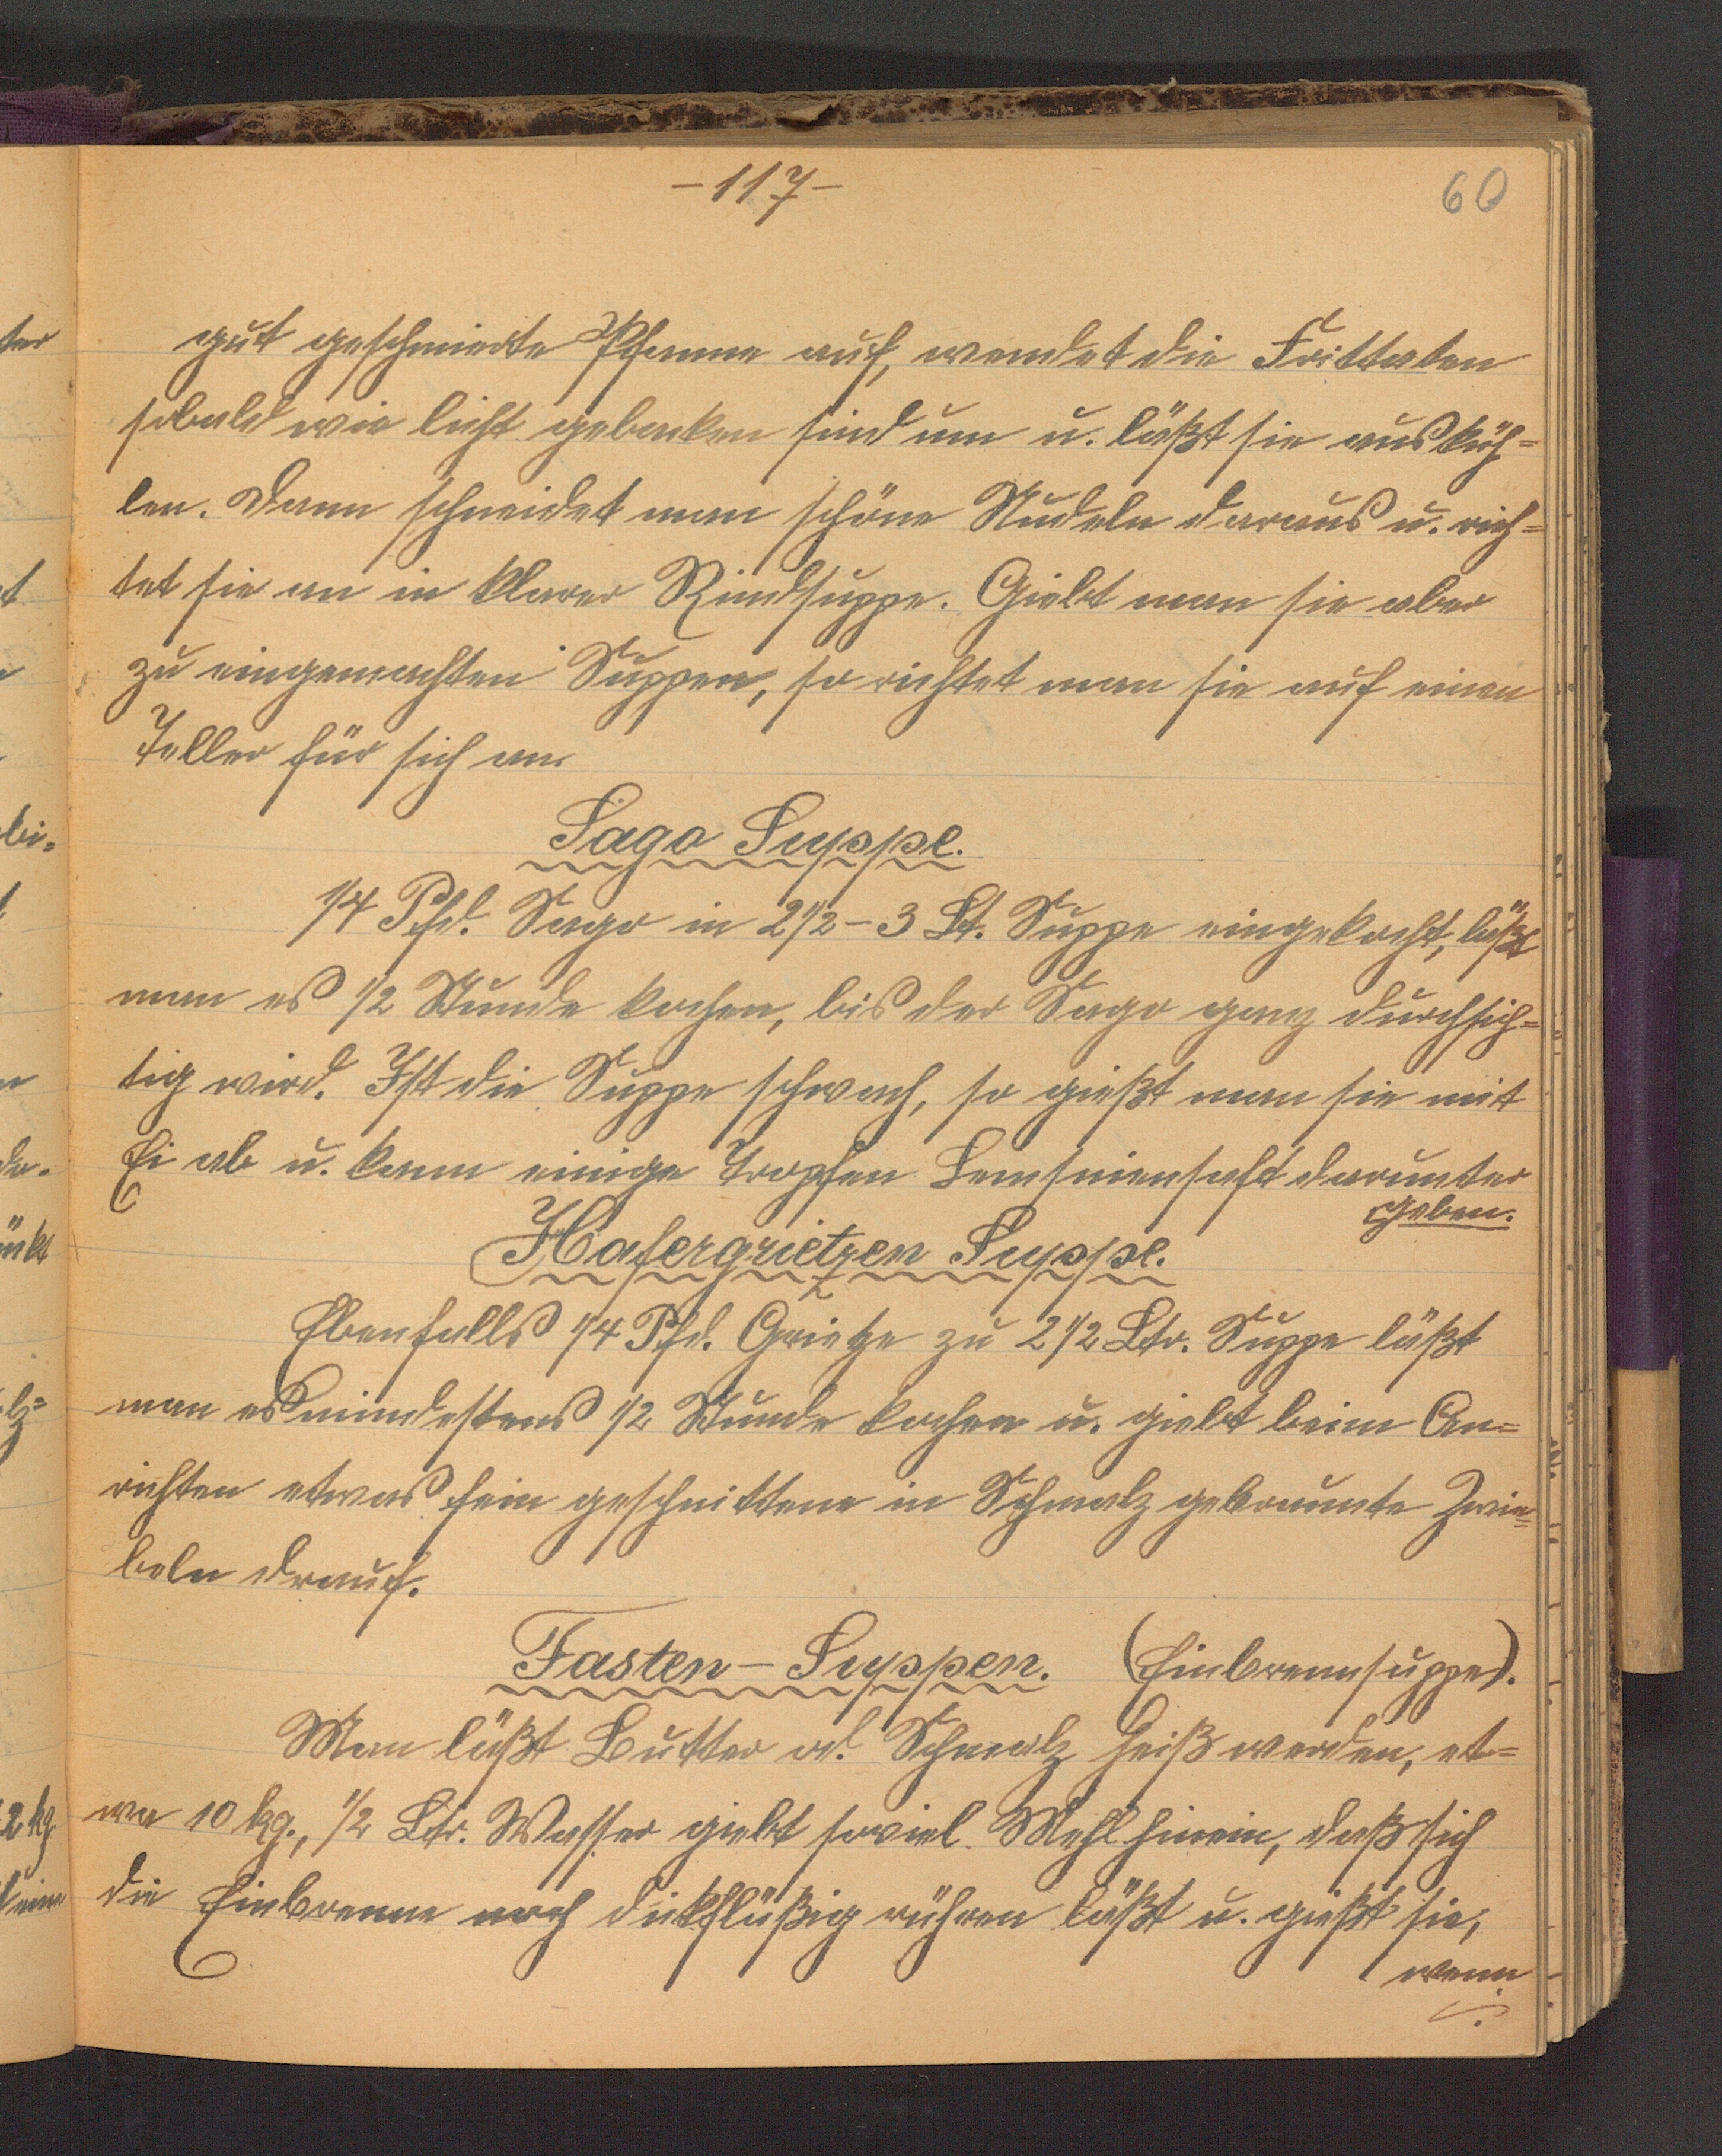 -117-
60
gut geschmierte Pfanne auf, wendet die Frittaten
sobald wie licht gebacken sind um u. läßt sie ausküh=
len. Dann schneidet man schöne Nudeln daraus u. rich=
tet sie an in klarer Rindsuppe. Giebt man sie aber
zu eingemachten Suppen, so richtet man sie auf einen
Teller für sich an.
Sago Suppe.
1/4 Pfd. Sago in 2 1/2 - 3 Lt. Suppe eingekocht, läßt
man es 1/2 Stunde kochen, bis der Sago ganz durchsich=
tig wird. Ist die Suppe schwach, so gießt man sie mit
Ei ab u. kann einige Tropfen darunter
geben.
Hafergrietzen Suppe.
Ebenfalls 1/4 Pfd. Grietze zu 2 1/2 Ltr. Suppe läßt
man es mindestens 1/2 Stunde kochen u. giebt beim An=
richten etwas fein geschnittene in Schmalz gebraunte Zwie=
beln drauf.
Fasten-Suppen. (Einbrennsuppe).
Man läßt Butter od. Schmalz heiß werden, et=
wa 10 kg., 1/2 Ltr. Wasser giebt soviel Mehl hinein, daß sich
die Einbrenne noch dickflüßig rühren läßt u. gießt sie,
wenn